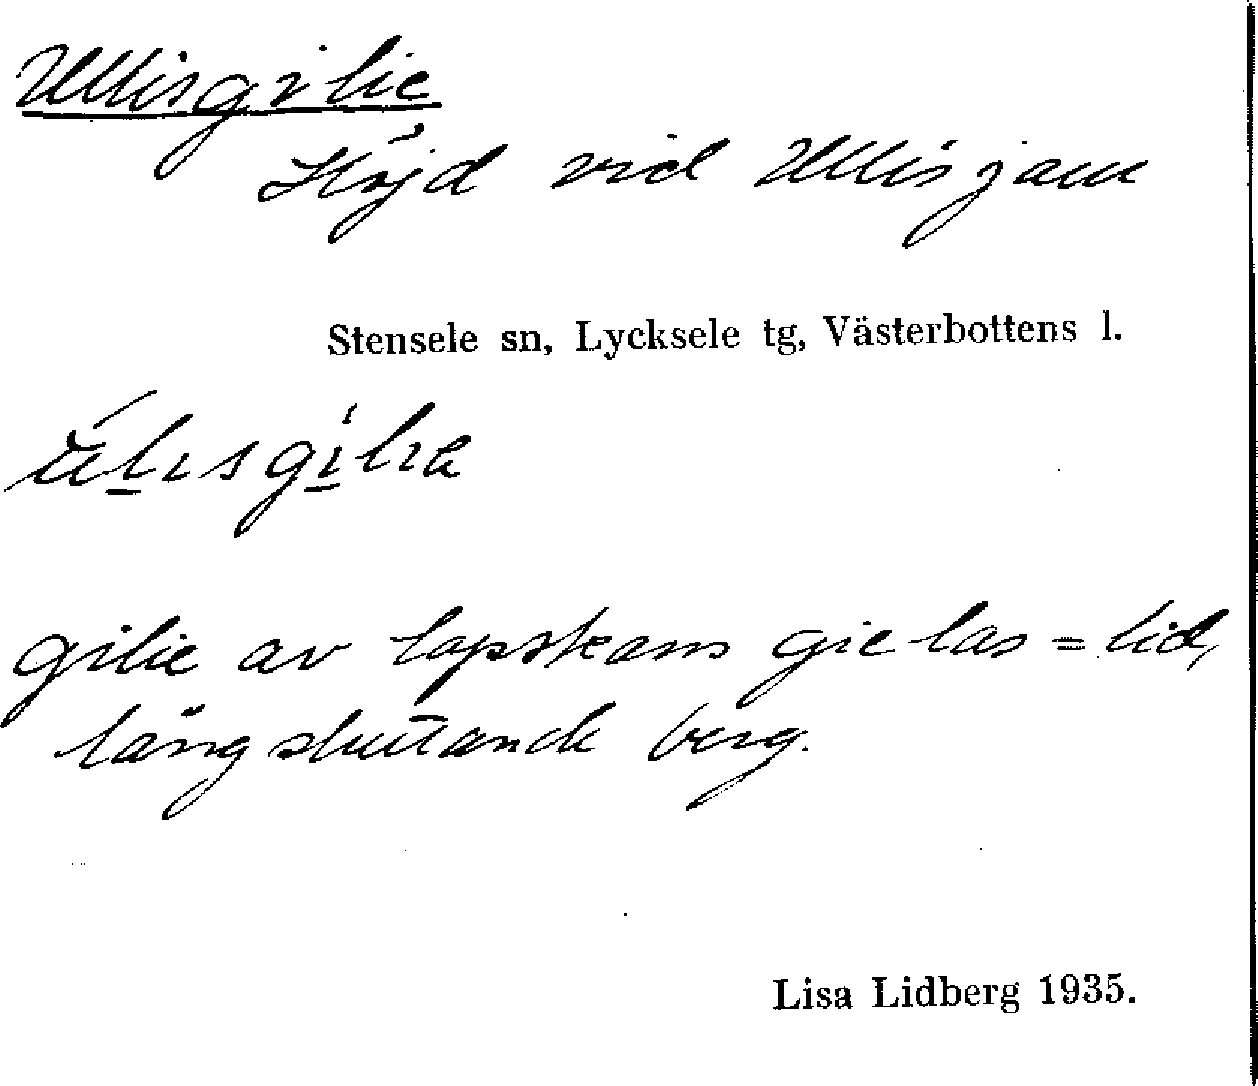 Ullisgilie
Höjd vid Ullisjaur
Stensele sn, Lycksele tg, Västerbottens l.
gilie av lapskans gielas = lid,
långsluttande berg.
Lisa Lidberg 1935.